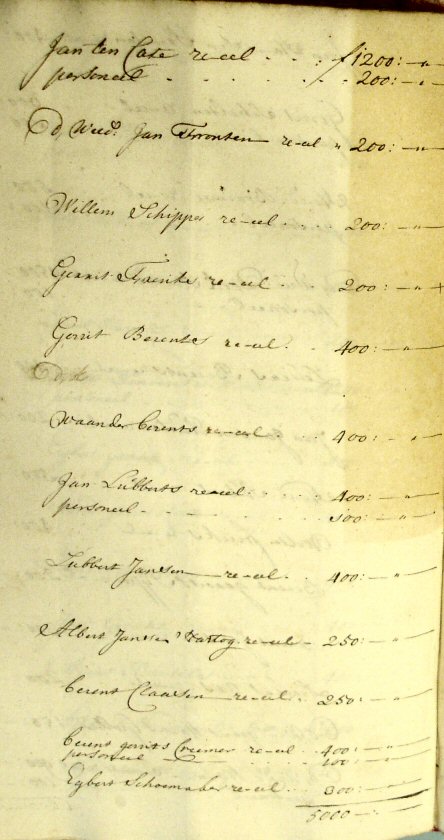 Jan ten Cate re-eel . . . ƒ1200: — „ —
personeel . . . . . 200: — „ —
D, Wed.e Jan Fronten re-eel „ 200: — „ —
Willem Schipper re-eel . 200: — „ —
Gerrit Twenke re-eel . 200: — „ —
Gerrit Berents re-eel . 400: — „ —
Waander Berents re-eel . 400: — „ —
Jan Lubberts re-eel . . 400: — „ —
personeel . . . 500: — „ —
Lubbert Jansen re-eel . . 400: — „ —
Albert Jansen Hartog re-eel — 250: — „ —
Berent Claasen re-eel . 250: — „ —
Berent gerrits Creemer re-eel . . 400: — „ —
personeel — 100: — „ —
Egbert Schoemaker re-eel . . 300: — „ —
5000 — : —